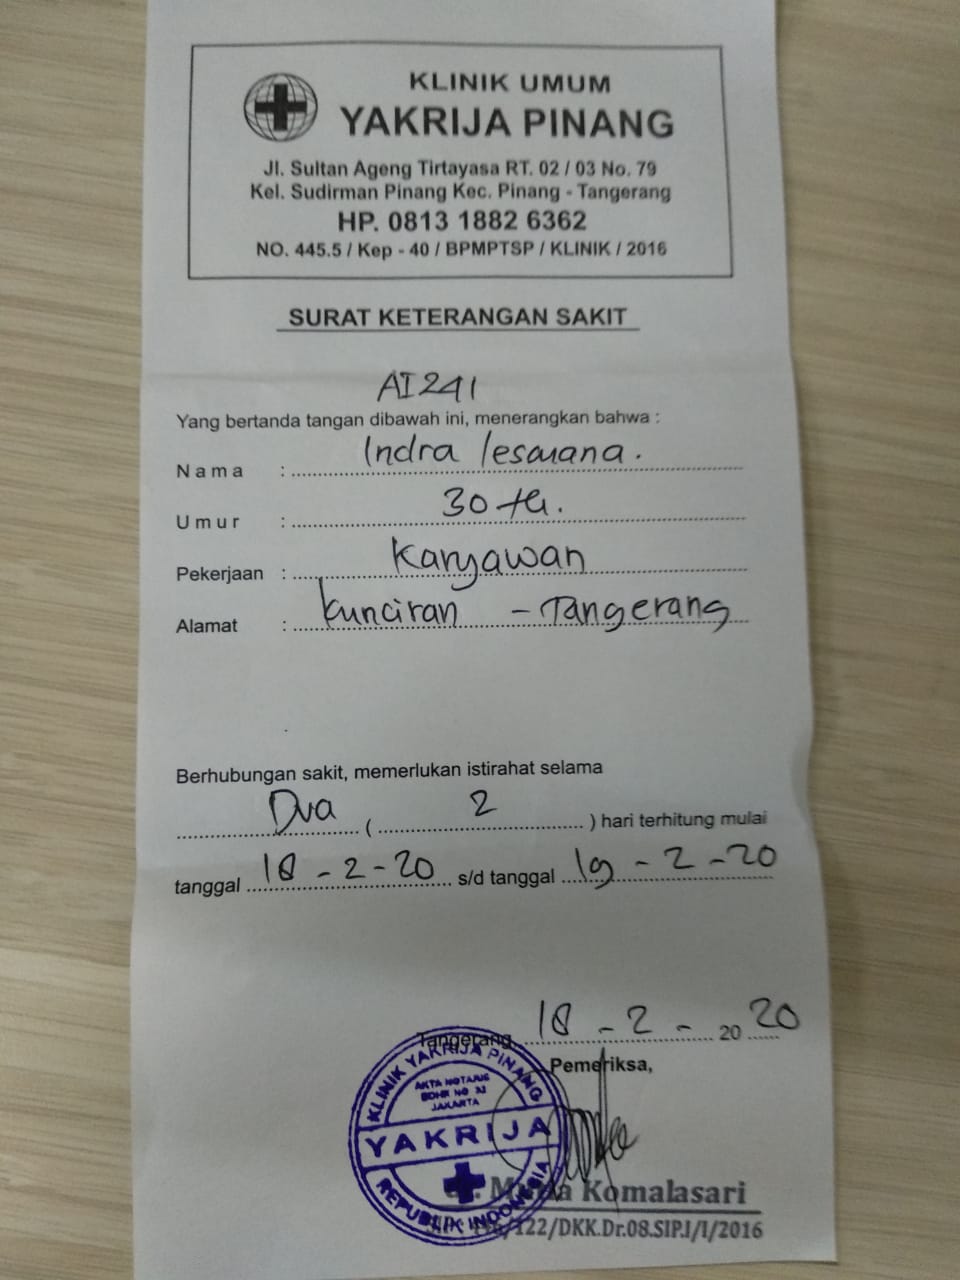 KLINIK UMUM
YAKRIJA PINANG
Jl. Sultan Ageng Tirtayasa RT. 02 / 03 No. 79
Kel. Sudirman Pinang Kec. Pinang - Tangerang
HP. 0813 1882 6362
NO. 445.5 / Kep - 40 / BPMPTSP / KLINIK / 2016
SURAT KETERANGAN SAKIT
AI241
Yang bertanda tangan dibawah ini, menerangkan bahwa :
Nama : Indra lesmana.
Umur : 30 th.
Pekerjaan : Karyawan
Alamat : kunciran - Tangerang
Berhubungan sakit, memerlukan istirahat selama
Dua ( 2 ) hari terhitung mulai
tanggal 18 - 2 - 20 s/d tanggal 19 - 2 - 20
Tangerang, 18 - 2 - 20 20
Pemeriksa,
KLINIK YAKRIJA PINANG
AKTA NOTARIS
JAKARTA
YAKRIJA
REPUBLIK INDONESIA
Komalasari
/122/DKK.Dr.08.SIP.I/I/2016